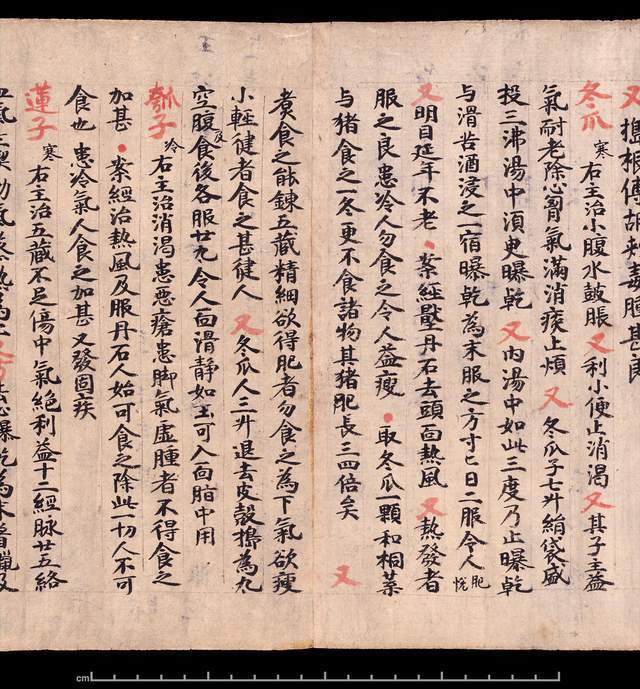 又 擣根傅胡刾毒腫甚良
冬瓜 寒 右主治小腹水鼓脹 又 利小便止消渴 又 其子主益
氣耐老除心胷氣滿消痰止煩 又 冬瓜子七升絹袋盛
投三沸湯中湏臾曝乾 又 內湯中如此三度乃止曝乾
与滑苦酒浸之一宿曝乾為末服之方寸匕日二服令人肥悅
又 明目延年不老 案經壓丹石去頭面熱風 又 熱發者
服之良患冷人勿食之令人益瘦 取冬瓜一顆和桐葉
与猪食之一冬更不食諸物其猪肥長三四倍矣 又
煑食之能鍊五藏精細欲得肥者勿食之為下氣欲瘦
小輕健者食之甚健人 又 冬瓜人三升退去皮殼擣為丸
空腹及食後各服廿丸令人面滑静如玉可入面脂中用
瓠子 冷 右主治消渴患惡瘡患脚氣虛腫者不得食之
加甚 案經治熱風及服丹石人始可食之除此一切人不可
食也 患冷氣人食之加甚 又發固疾
蓮子 寒 右主治五藏不足傷中氣絕利益十二經脉廿五絡
cm